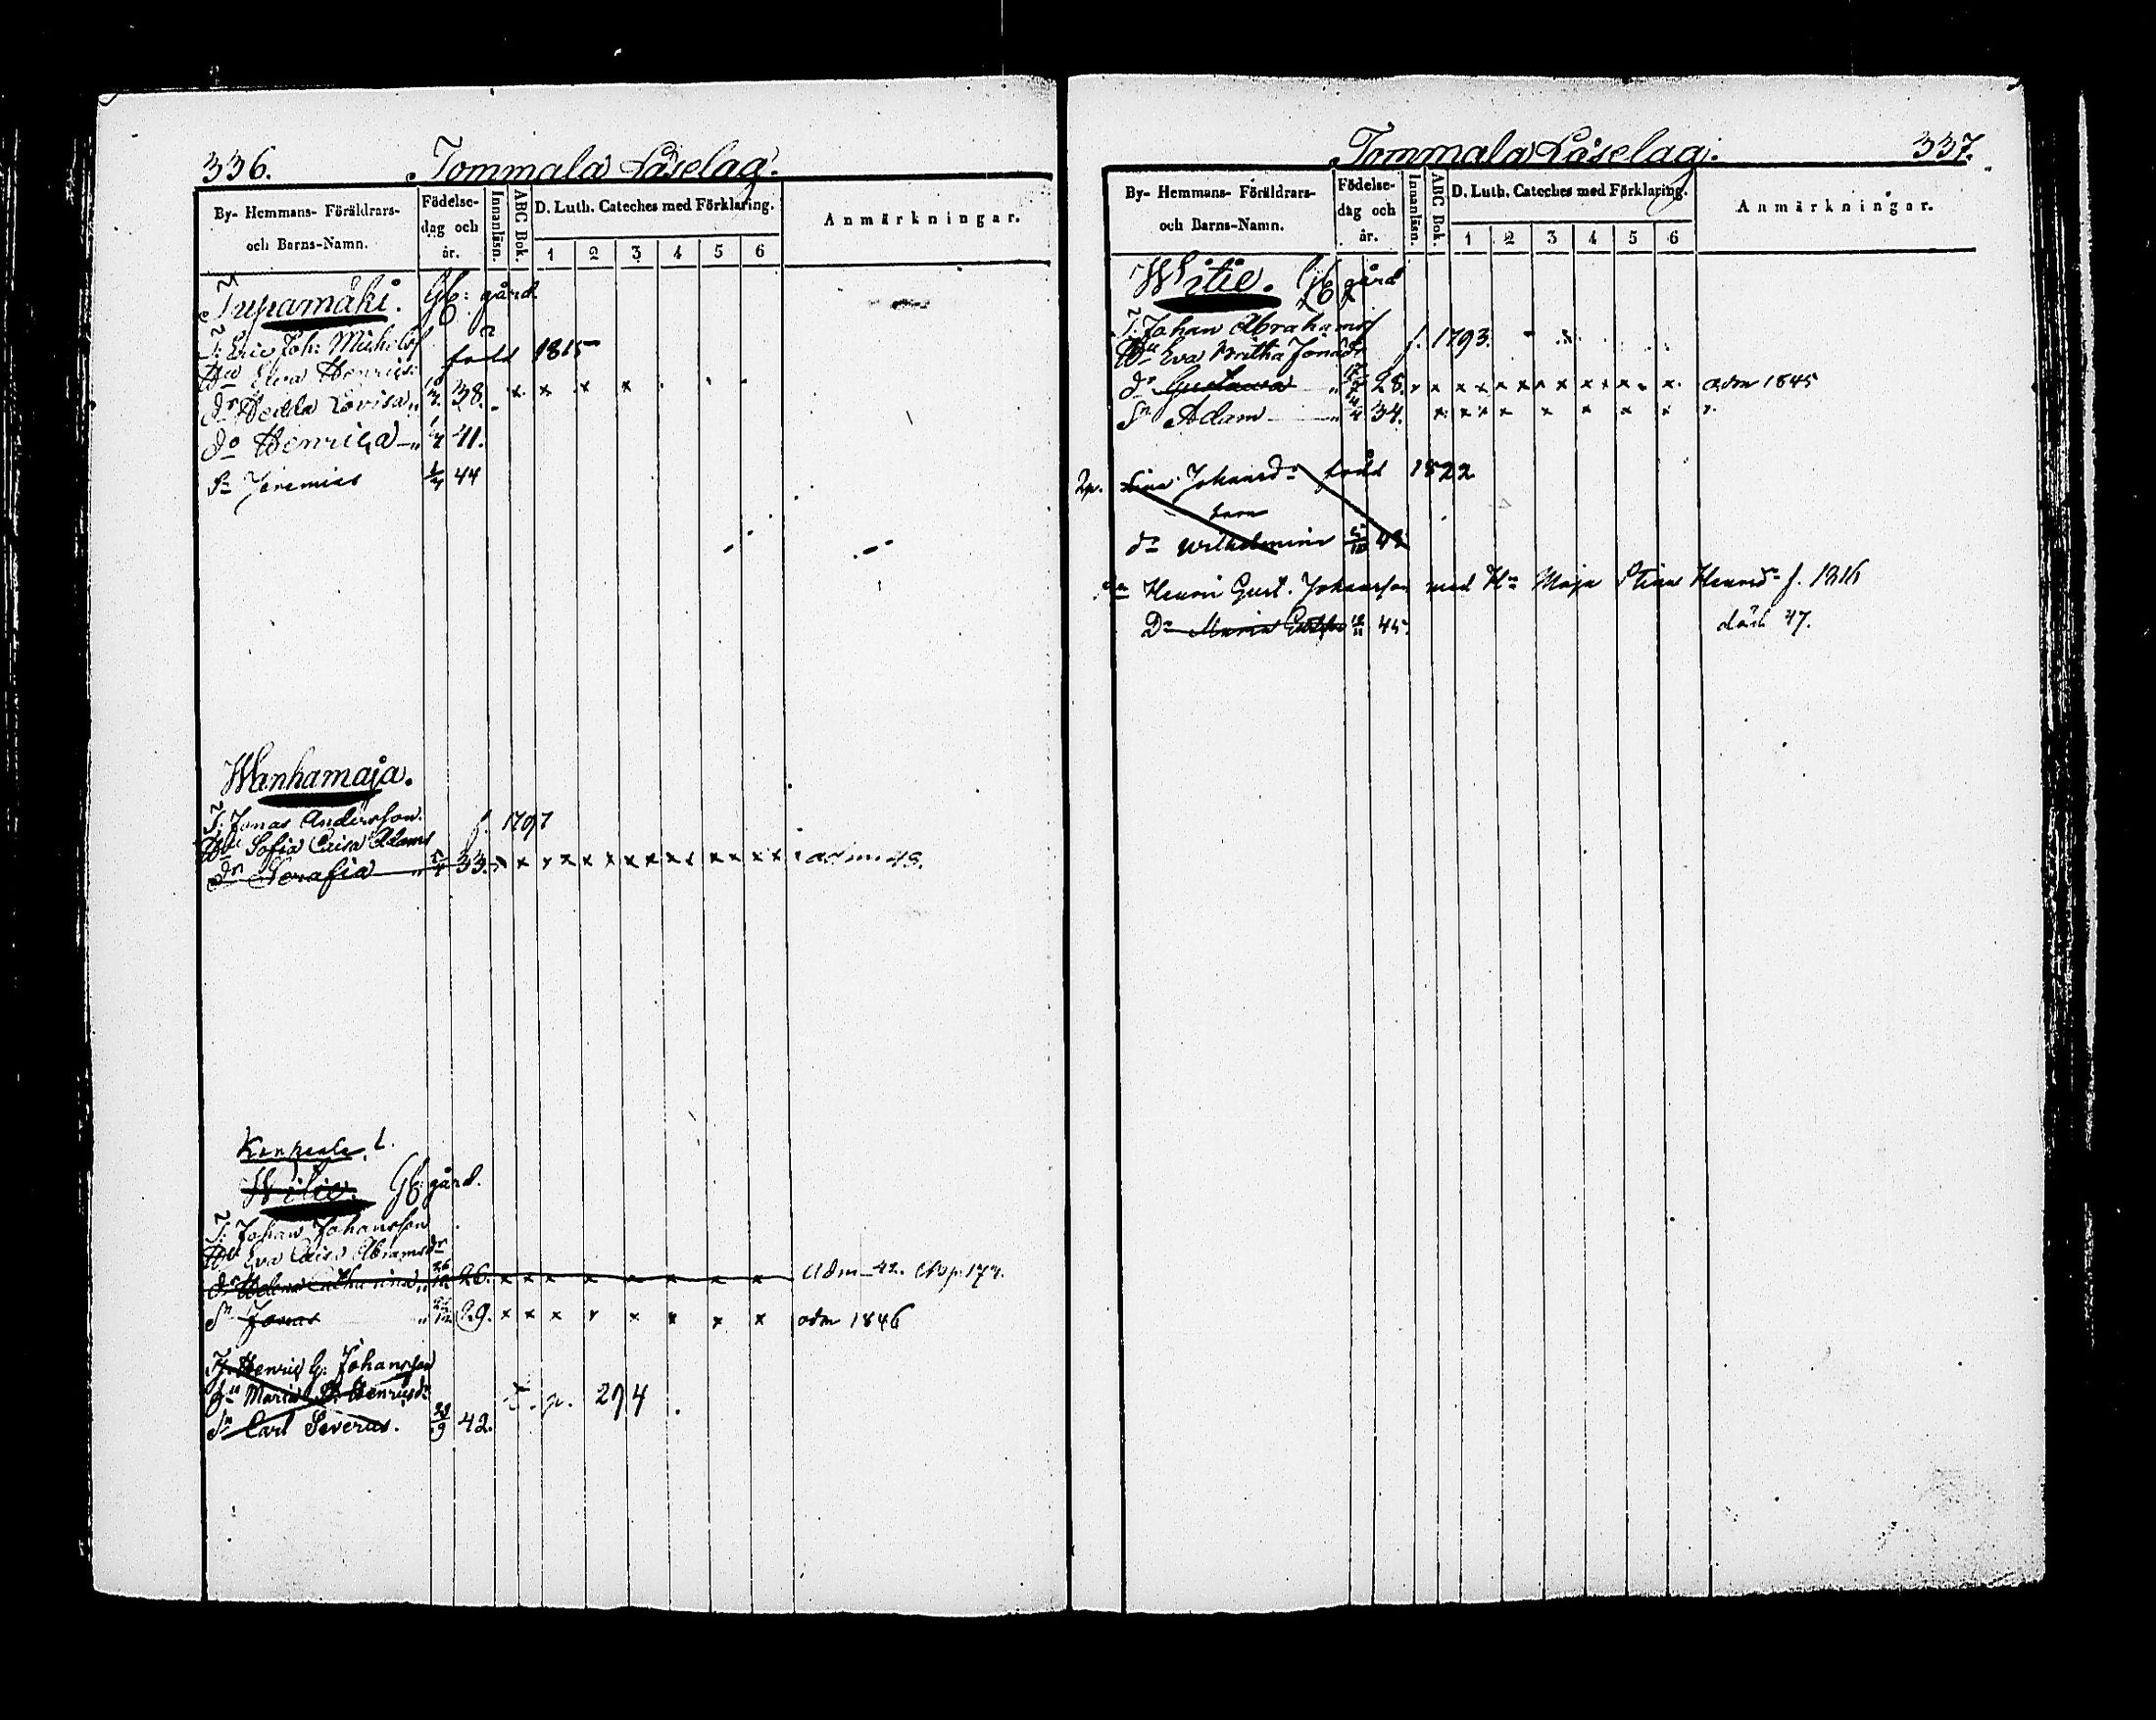 336. Tommala Läselag.
By- Hemmans- Föräldrars-
och Barns-Namn.
Födelse-
dag och
år.
Innanläsn.
ABC Bok.
D. Luth. Cateches med Förklaring.
1 2 3 4 5 6
Anmärkningar.
Tupamäki. Gb: gård
T: Eric Joh: Michelsf
Hu Eva Henrics: född 1815
dr Hedda Lovisa " 38. x x x x
do Henrica " 41.
Sn Jeremias 44
Wanhamaja.
T: Jonas Andersson.
Hu Sofia Caisa Adams f. 1797
dr Serafia " 33. x x x x x x x x x x x x x adm 49.
Kenkeala L.
Witie. Gb: gård.
T: Johan Johansson
Hu Eva Caisa Abramsdr
dr Helena Catharina " 26. x x x x x x x x adm 42.
Sn Jonas " 29. x x x x x x x x adm 1846
Henric G. Johansson
hu Maria S. Henricsdr p. 294
Sn Carl Severus. 28/9 42.
Tommala Läselag. 337.
By- Hemmans- Föräldrars-
och Barns-Namn.
Födelse-
dag och
år.
Innanläsn.
ABC Bok.
D. Luth. Cateches med Förklaring.
1 2 3 4 5 6
Anmärkningar.
Witie. Gb gård
T: Johan Abrahamsf
Hu Eva Britha Jonasdr f. 1793.
dr Gustava " 28. x x x x x x x x x x x x x adm 1845
Sn Adam " 34. x x x x x x x x x
Ip. Lisa Johansdr född 1822
barn
dr Wilhelmina 5/10 43
Henric Gust. Johansson med Hu Maja Stina Henrsdr f. 1816
Dr Maria Gustava 45. död 47.